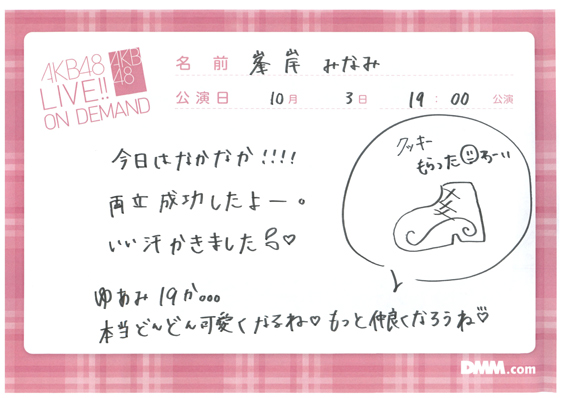 AKB48
LIVE!!
ON DEMAND
AKB
48
名前 峯岸 みなみ
公演日 10月 3日 19:00 公演
今日はなかなか!!!!
両立成功したよー。
いい汗かきました♡
クッキー
もらった☺わーい
ゆあみ19か...
本当どんどん可愛くなるね♡もっと仲良くなろうね♡
DMM.com